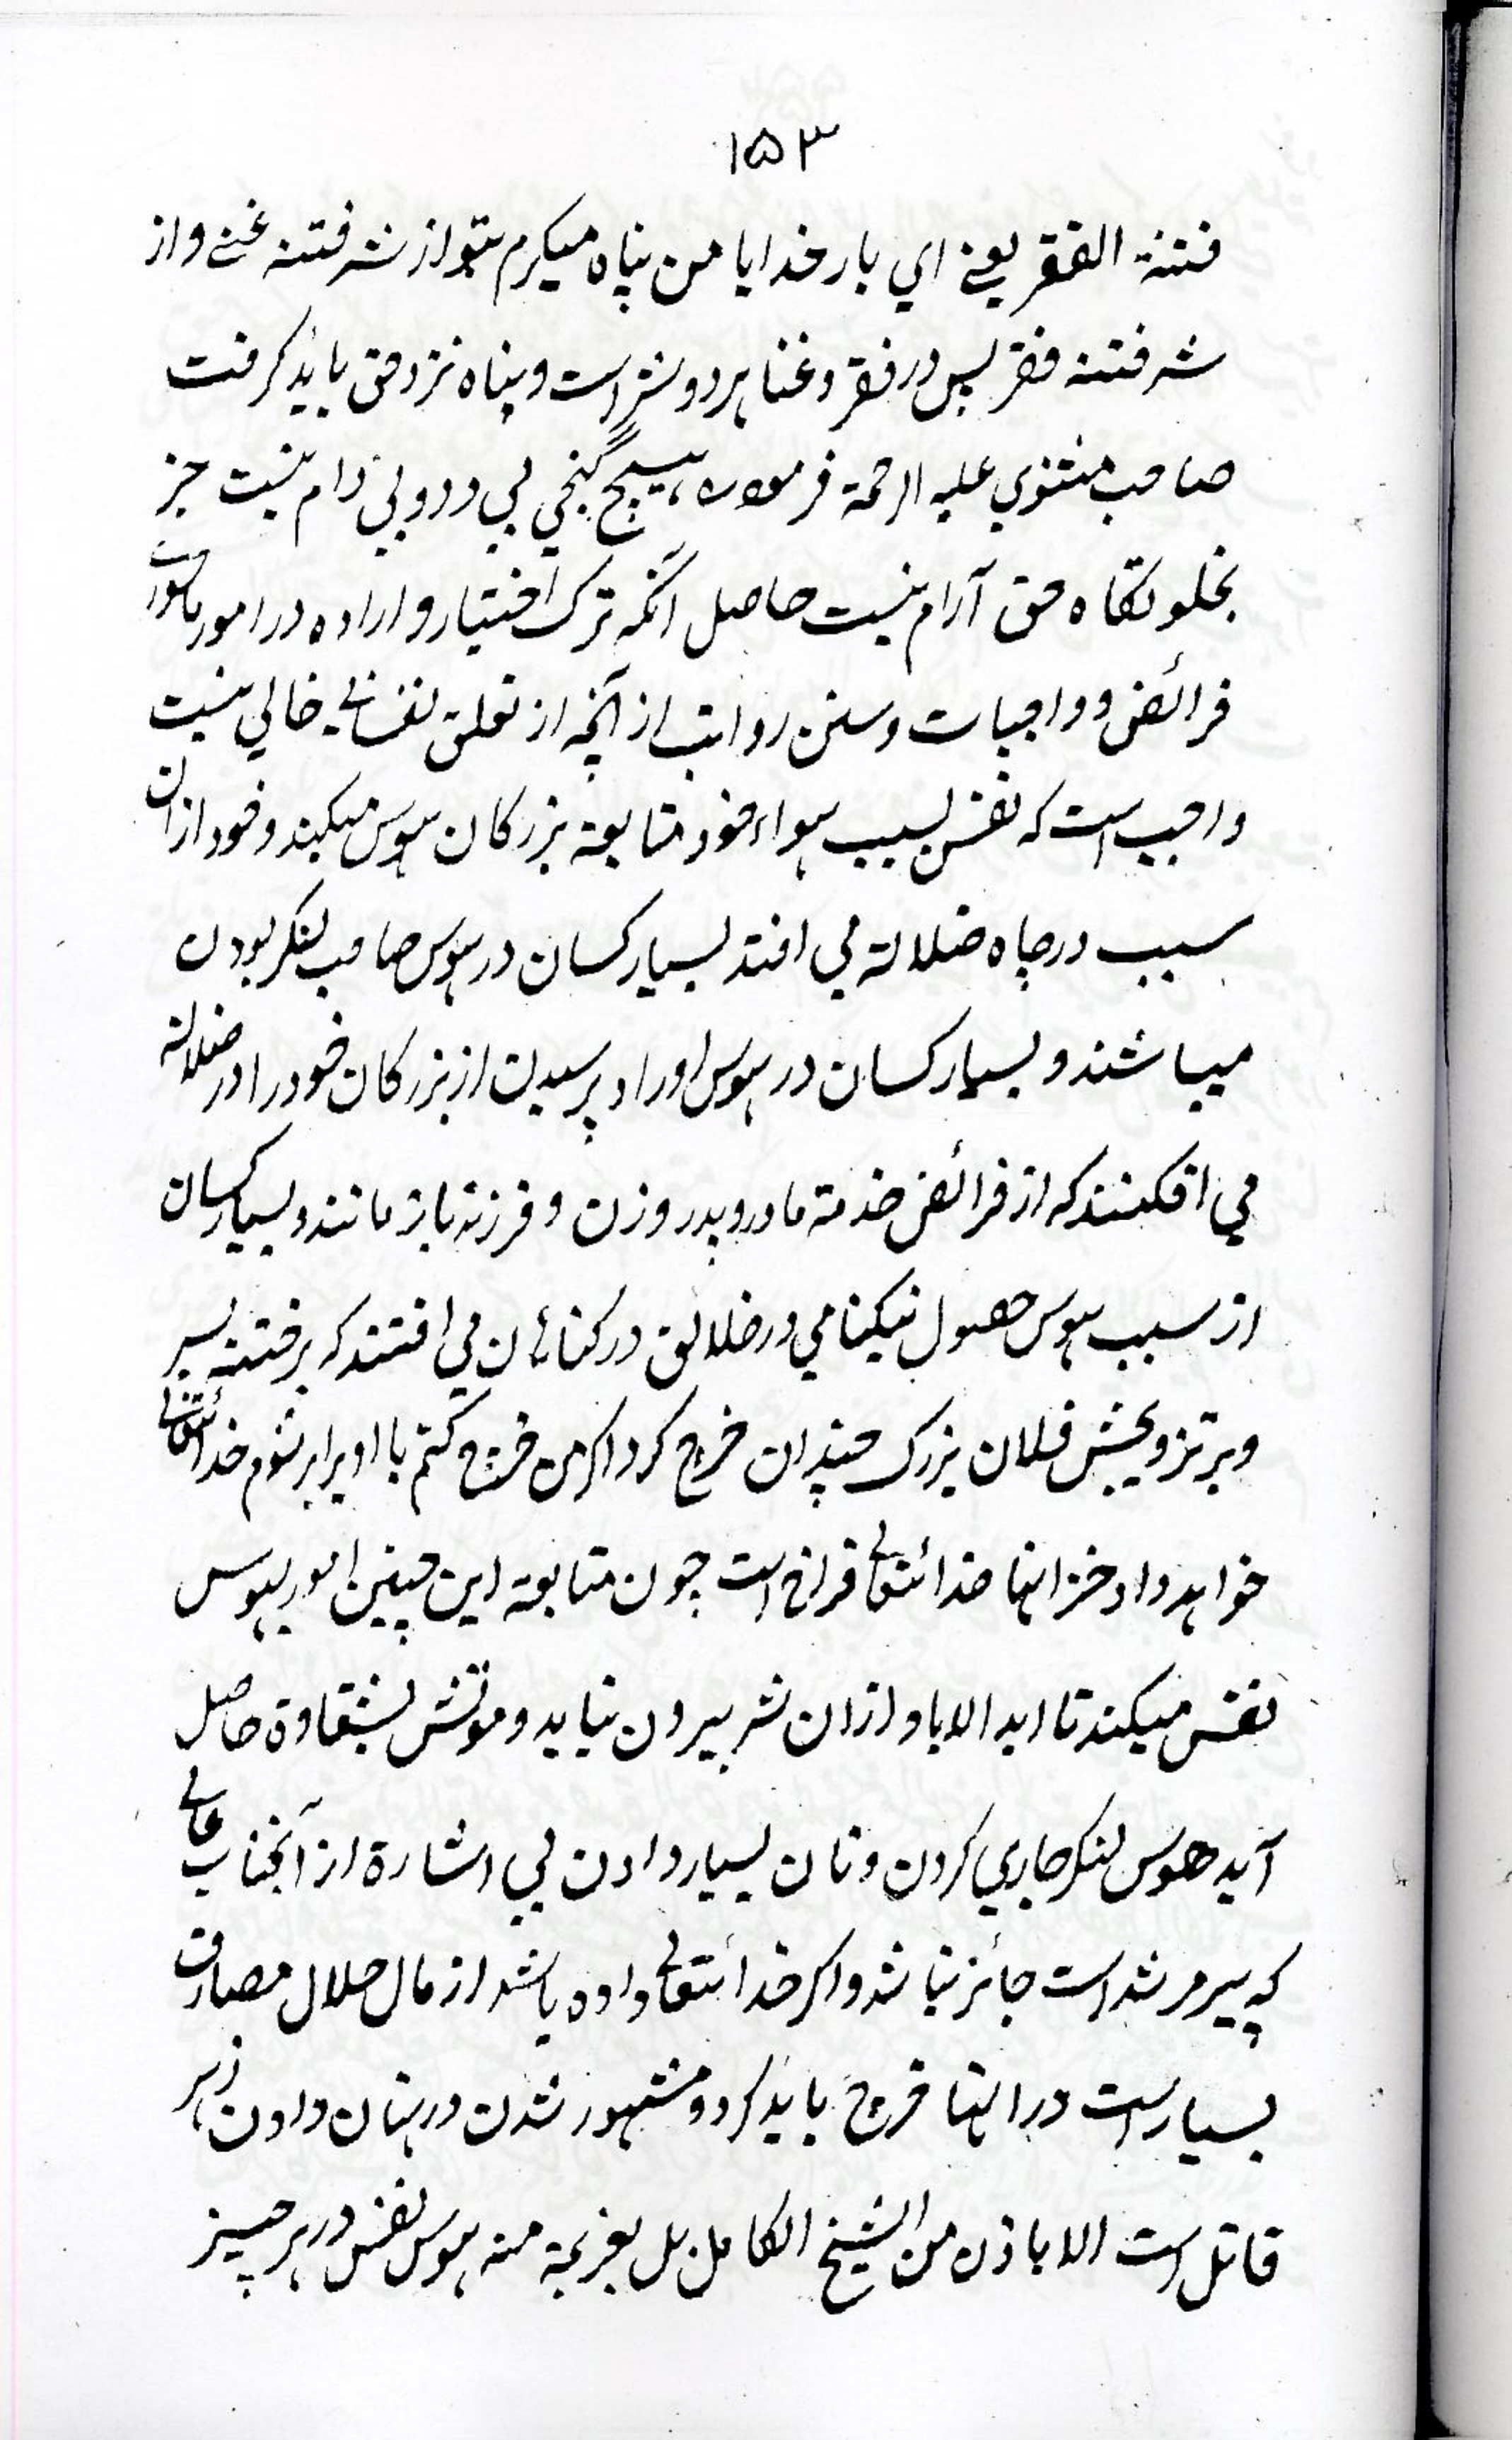 ۱۵۳
فتنة الفقر یعنے اي بار خدایا من پناه میکیرم بتو از شر فتنه غنے و از
شر فتنه فقر پس در فقر و غنا هر دو شر است و پناه نزد حق باید کرفت
صاحب مثنوي علیه الرحمة فرموده هیچ گنجي بي دد و بي دام نیست جز
بخلوتکاه حق آرام نیست حاصل آنکه ترک اختیار و اراده در امور ماسوائے
فرائض و واجبات و سنن رواتب از آنچه از تعلق نفسانے خالي نیست
واجب است که نفس بسبب هواء خود متابعة بزرکان هوس میکند و خود ازان
سبب در چاه ضلالة مي افتد بسیار کسان در هوس صاحب لنکر بودن
میباشند و بسیار کسان در هوس اوراد پرسیدن از بزرکان خود را در ضلالة
مي افکنند که از فرائض خدمة مادر و پدر و زن و فرزند باز مانند و بسیار کسان
از سبب هوس حصول نیکنامي در خلائق در کناهان مي افتند که بر ختنه پسر
و بر تزویجش فلان بزرک چندان خرچ کرد اکر من خرچ کنم با او برابر شوم خدائتعالے
خواهد داد خزانها خدائتعالے فراخ است چون متابعة این چنین امور بهوس
نفس میکند تا ابد الاباد ازان شر بیرون نیاید و موتش بشقاوة حاصل
آید هوس لنکر جاري کردن و نان بسیار دادن بي اشارة از آنجناب عالے
که پیر مرشد است جائز نباشد و اکر خدائتعالے داده باشد از مال حلال مصارف
بسیار است در انها خرچ باید کرد و مشهور شدن در بنان دادن زهر
قاتل است الا باذن من الشیخ الکامل بل بعزیمة منه هوس نفس در هر چیز